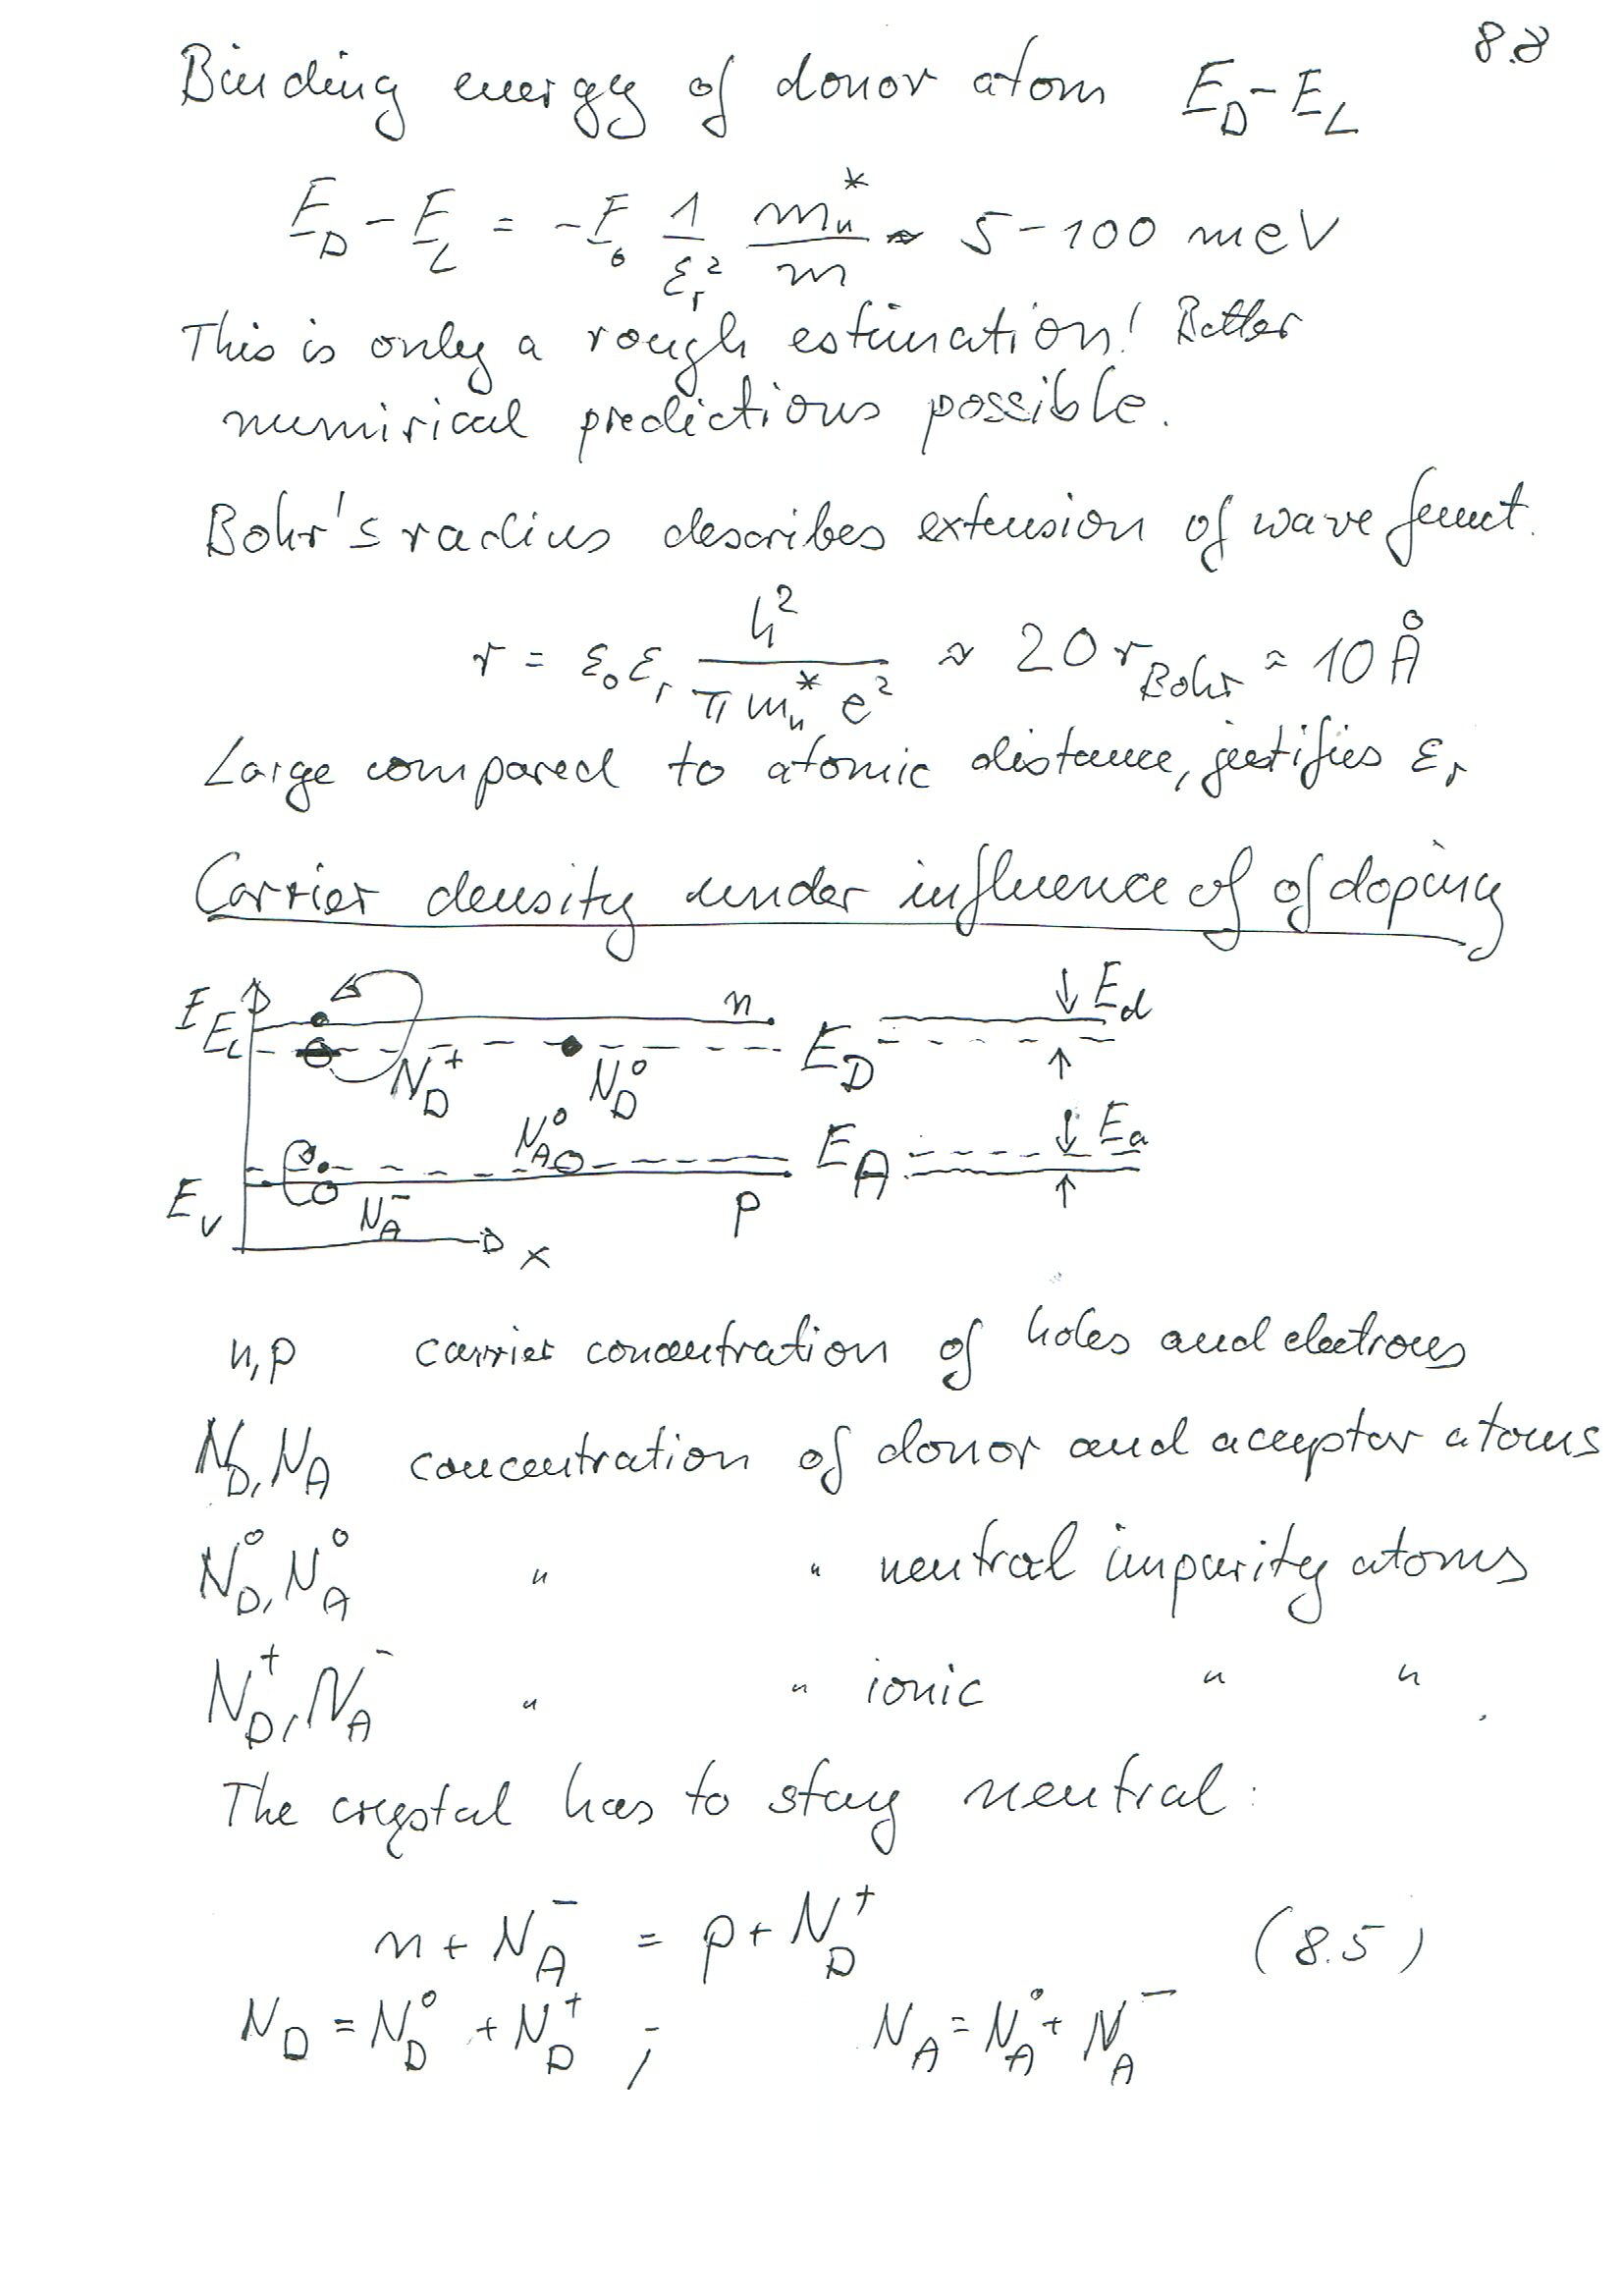 8.8
Binding energy of donor atom E_D - E_L
E_D - E_L = -E_0 1/ε_r² m_n*/m ≈ 5-100 meV
This is only a rough estimation! Better
numirical predictions possible.
Bohr's radius describes extension of wave funct.
r = ε_0 ε_r h²/(π m_n* e²) ≈ 20 r_Bohr ≈ 10 Å
Large compared to atomic distance, justifies ε_r
Carrier density under influence of of doping
E n E_d
E_L E_D
N_D^+ N_D^0
N_A^0 E_A E_a
E_V N_A^- p
x
n,p carrier concentration of holes and electrons
N_D, N_A concentration of donor and acceptor atoms
N_D^0, N_A^0 " " neutral impurity atoms
N_D^+, N_A^- " " ionic " " .
The crystal has to stay neutral:
n + N_A^- = p + N_D^+ (8.5)
N_D = N_D^0 + N_D^+ ; N_A = N_A^0 + N_A^-